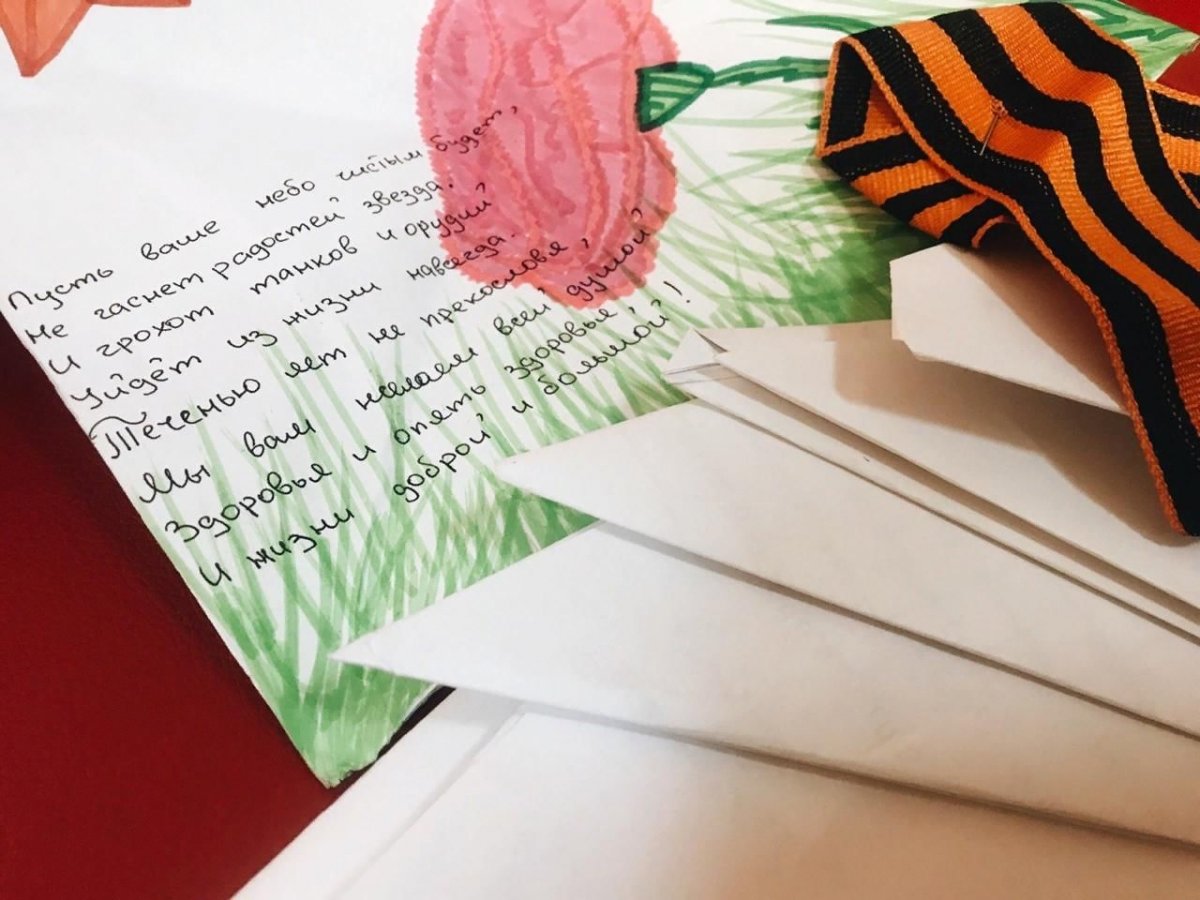 Пусть ваше небо чистым будет,
Не гаснет радостей звезда.
И грохот танков и орудий
Уйдёт из жизни навсегда.
Теченью лет не прекословя,
Мы вам желаем всей душой
Здоровья и опять здоровья
И жизни доброй и большой!